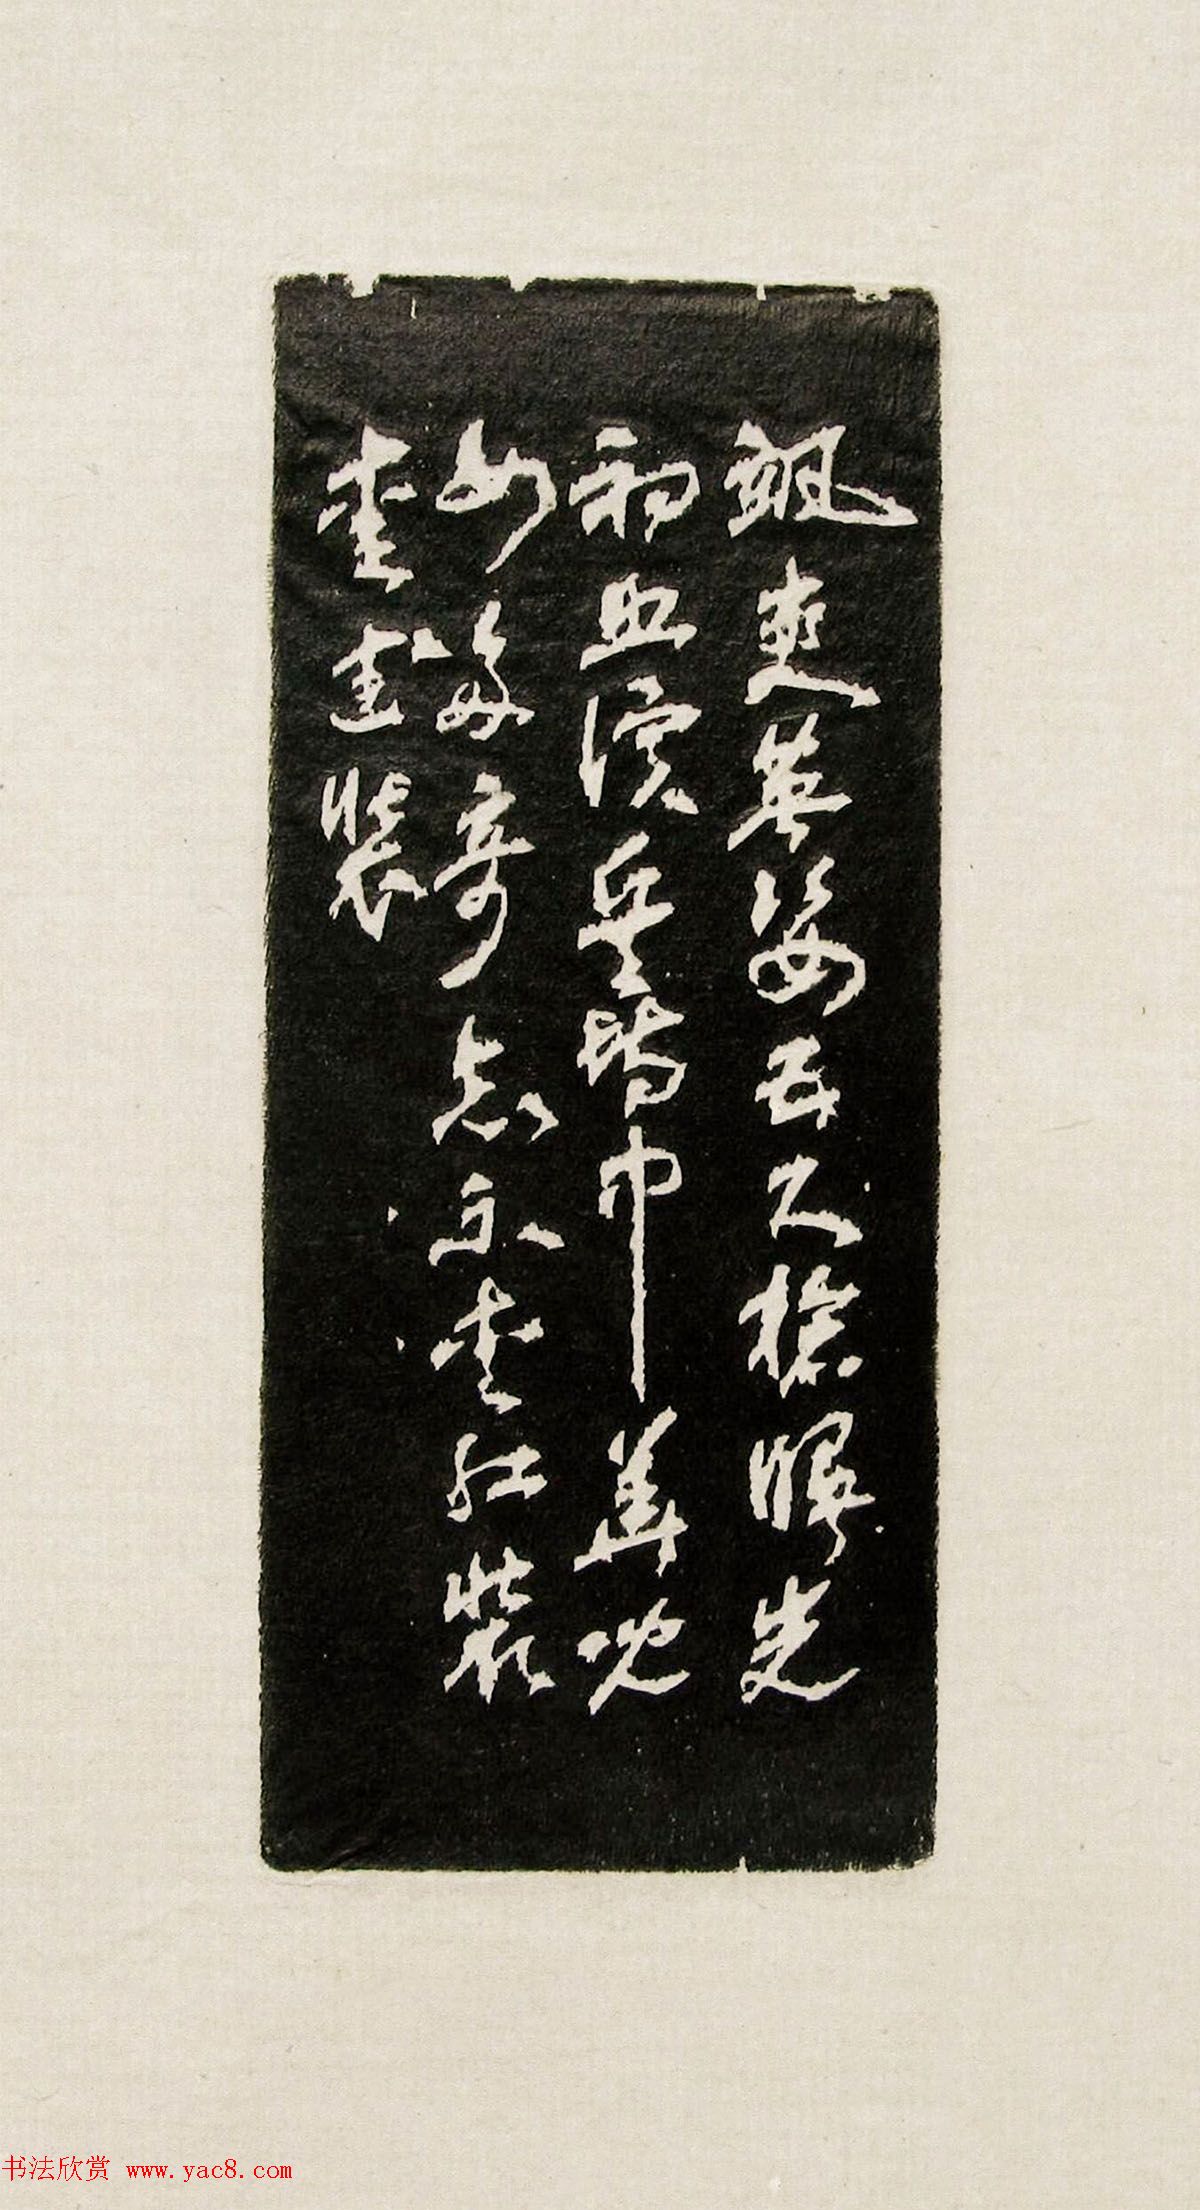 飒爽英姿五尺枪曙光
初照演兵场中华儿
女多奇志不爱红装
爱武装
书法欣赏 www.yac8.com